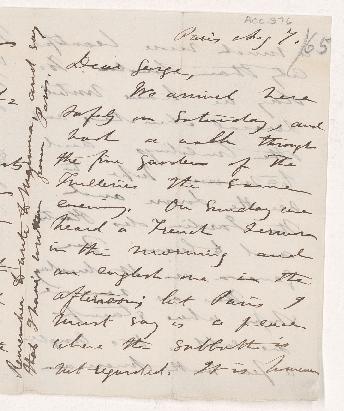 ACC. 876
Paris Aug 7. /65
Dear George,
We arrived here
safely on Saturday, and
had a walk through
the fine gardens of the
Tuileries the same
evening. On Sunday we
heard a French Sermon
in the morning and
an english one in the
afternoon, but Paris I
must say is a place
where the sabbath is
not regarded. It is
Remember Dante to Mamma, and say
that I have written from Paris.